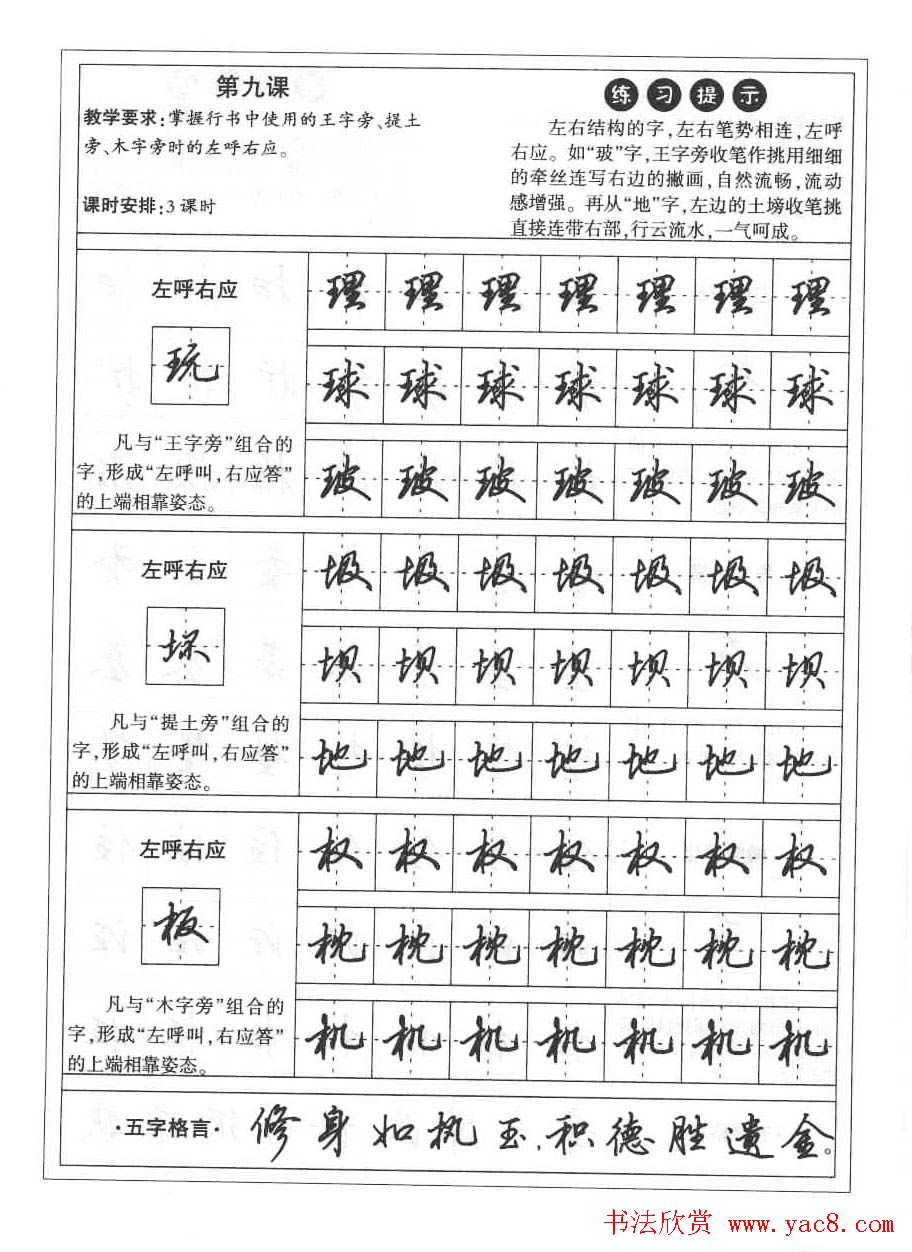 第九课
教学要求:掌握行书中使用的王字旁、提土
旁、木字旁时的左呼右应。
课时安排:3课时
练习提示
左右结构的字,左右笔势相连,左呼
右应。如“玻”字,王字旁收笔作挑用细细
的牵丝连写右边的撇画,自然流畅,流动
感增强。再从“地”字,左边的土塝收笔挑
直接连带右部,行云流水,一气呵成。
左呼右应
玩
凡与“王字旁”组合的
字,形成“左呼叫,右应答”
的上端相靠姿态。
理理理理理理理
球球球球球球球
玻玻玻玻玻玻玻
左呼右应
坏
凡与“提土旁”组合的
字,形成“左呼叫,右应答”
的上端相靠姿态。
圾圾圾圾圾圾圾
坝坝坝坝坝坝坝
地地地地地地地
左呼右应
板
凡与“木字旁”组合的
字,形成“左呼叫,右应答”
的上端相靠姿态。
权权权权权权权
枕枕枕枕枕枕枕
机机机机机机机
·五字格言· 修身如执玉,积德胜遗金。
书法欣赏 www.yac8.com